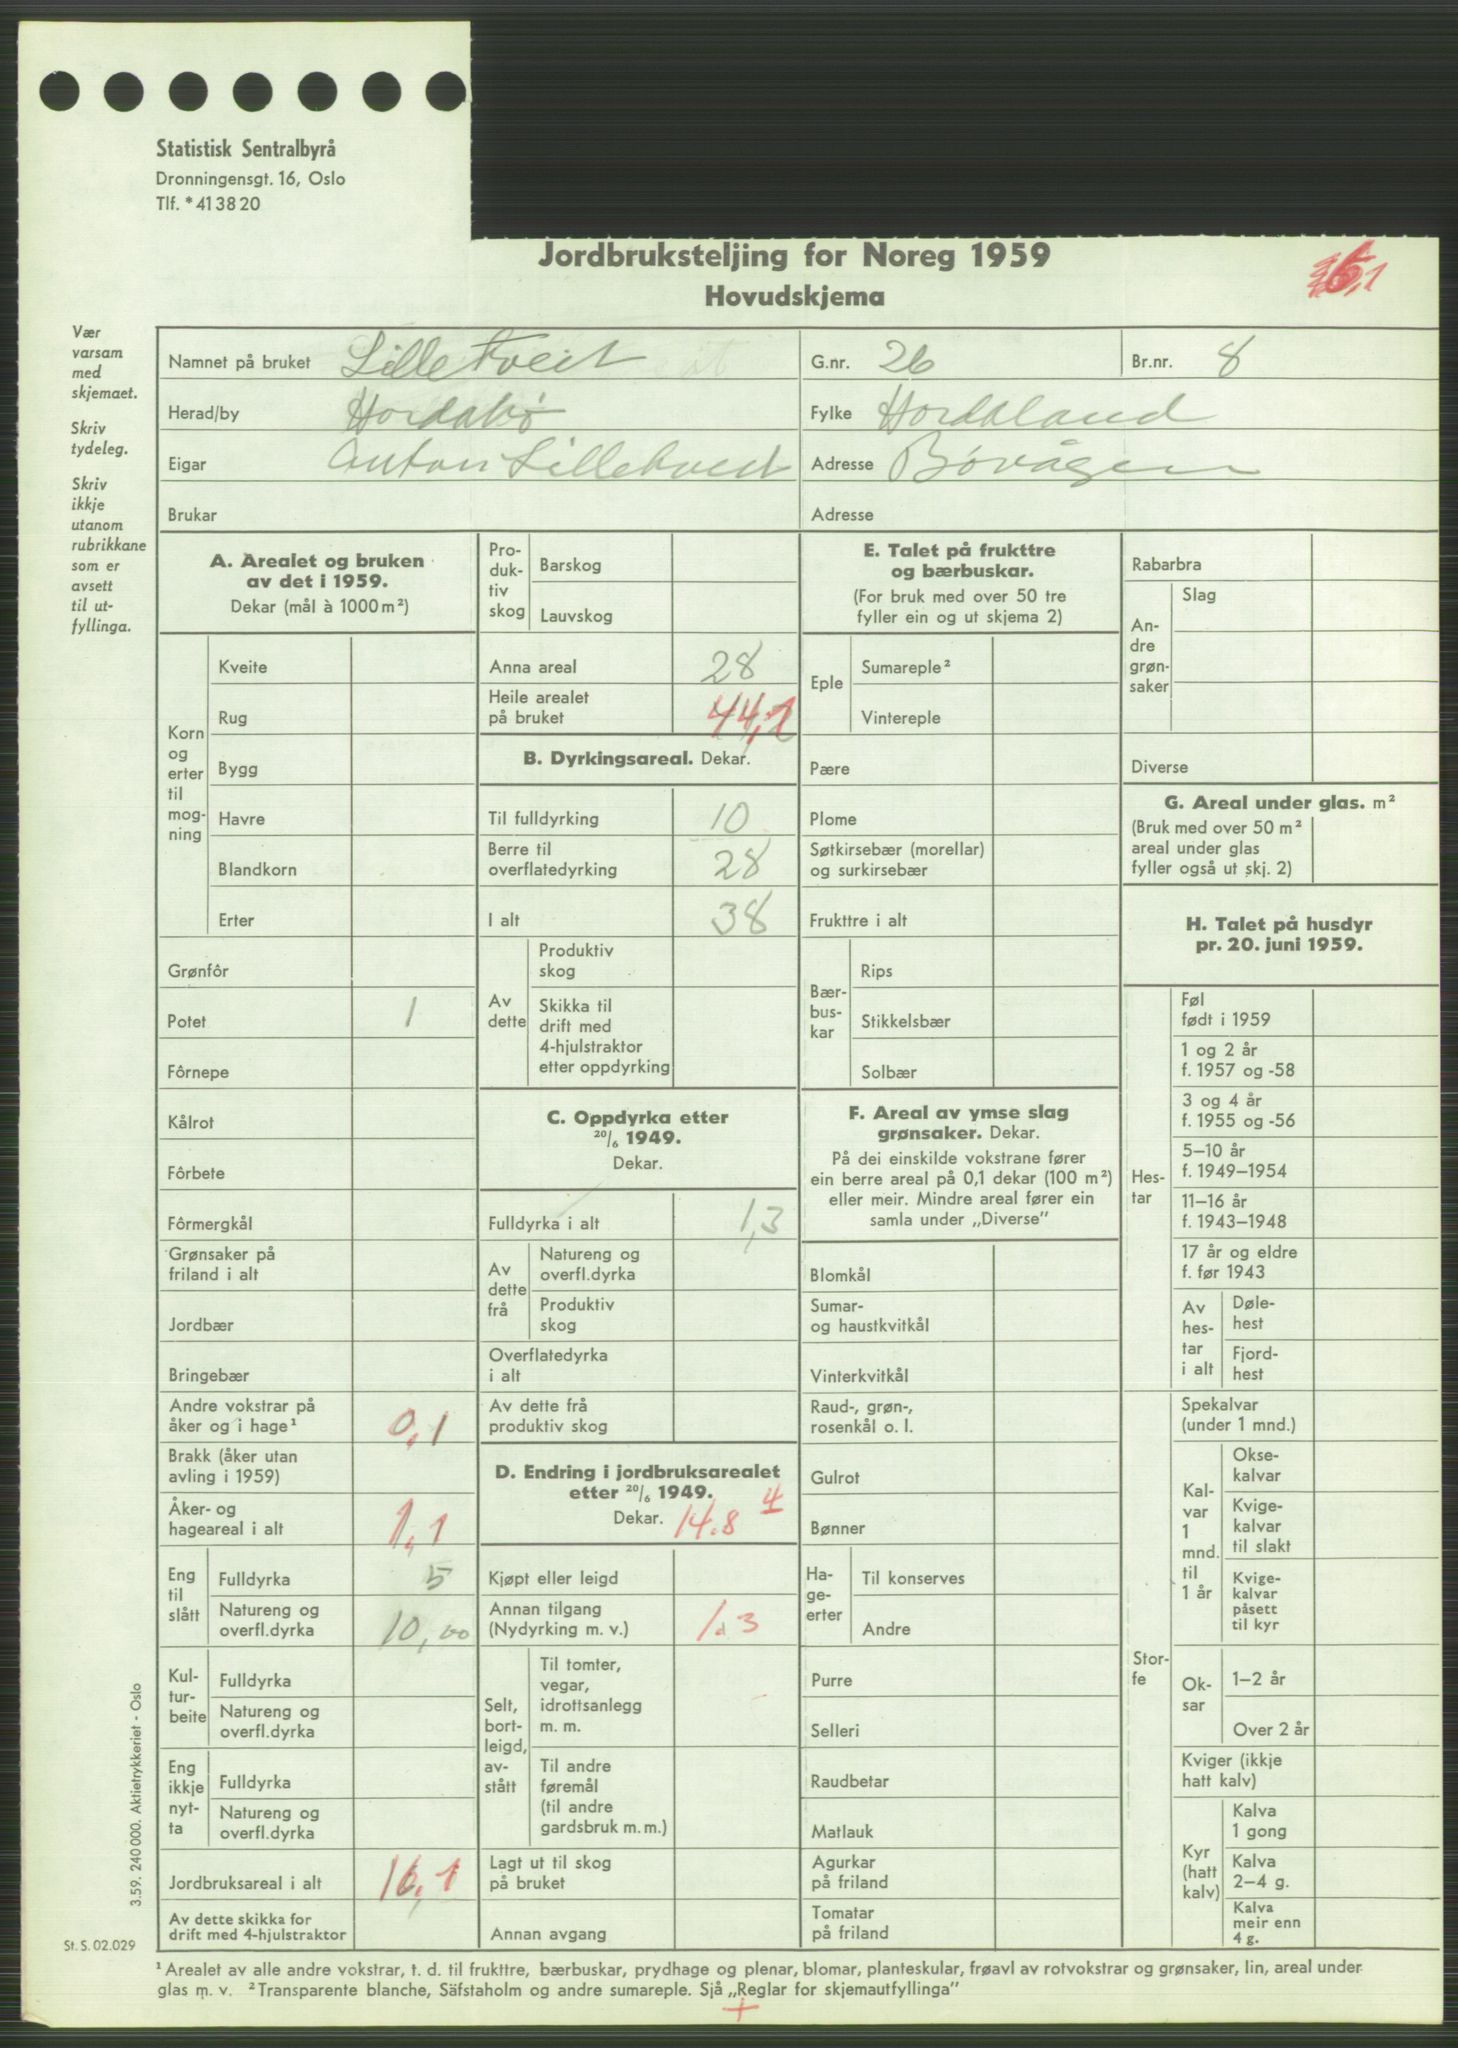 Statistisk Sentralbyrå
Dronningensgt. 16, Oslo
Tlf. * 41 38 20
Jordbruksteljing for Noreg 1959
Hovudskjema
Vær
varsam
med
skjemaet.
Skriv
tydeleg.
Skriv
ikkje
utanom
rubrikkane
som er
avsett
til ut-
fyllinga.
Namnet på bruket Lilletveit G.nr. 26 Br.nr. 8
Herad/by Hordabø Fylke Hordaland
Eigar Anton Lilletveit Adresse Bøvågen
Brukar Adresse
A. Arealet og bruken
av det i 1959.
Dekar (mål à 1000 m²)
Korn
og
erter
til
mog-
ning
Kveite
Rug
Bygg
Havre
Blandkorn
Erter
Grønfôr
Potet 1
Fôrnepe
Kålrot
Fôrbete
Fôrmergkål
Grønsaker på
friland i alt
Jordbær
Bringebær
Andre vokstrar på
åker og i hage¹ 0,1
Brakk (åker utan
avling i 1959)
Åker- og
hageareal i alt 1,1
Eng
til
slått
Fulldyrka 5
Natureng og
overfl.dyrka 10,00
Kul-
tur-
beite
Fulldyrka
Natureng og
overfl.dyrka
Eng
ikkje
nyt-
ta
Fulldyrka
Natureng og
overfl.dyrka
Jordbruksareal i alt 16,1
Av dette skikka for
drift med 4-hjulstraktor
Pro-
duk-
tiv
skog
Barskog
Lauvskog
Anna areal 28
Heile arealet
på bruket 44,1
B. Dyrkingsareal. Dekar.
Til fulldyrking 10
Berre til
overflatedyrking 28
I alt 38
Av
dette
Produktiv
skog
Skikka til
drift med
4-hjulstraktor
etter oppdyrking
C. Oppdyrka etter
20/6 1949.
Dekar.
Fulldyrka i alt 1,3
Av
dette
frå
Natureng og
overfl.dyrka
Produktiv
skog
Overflatedyrka
i alt
Av dette frå
produktiv skog
D. Endring i jordbruksarealet
etter 20/6 1949.
Dekar. 14.8 4
Kjøpt eller leigd
Annan tilgang
(Nydyrking m. v.) 1.3
Selt,
bort-
leigd,
av-
stått
Til tomter,
vegar,
idrottsanlegg
m. m.
Til andre
føremål
(til andre
gardsbruk m. m.)
Lagt ut til skog
på bruket
Annan avgang
E. Talet på frukttre
og bærbuskar.
(For bruk med over 50 tre
fyller ein og ut skjema 2)
Eple
Sumareple²
Vintereple
Pære
Plome
Søtkirsebær (morellar)
og surkirsebær
Frukttre i alt
Bær-
bus-
kar
Rips
Stikkelsbær
Solbær
F. Areal av ymse slag
grønsaker. Dekar.
På dei einskilde vokstrane fører
ein berre areal på 0,1 dekar (100 m²)
eller meir. Mindre areal fører ein
samla under „Diverse”
Blomkål
Sumar-
og haustkvitkål
Vinterkvitkål
Raud-, grøn-,
rosenkål o. l.
Gulrot
Bønner
Ha-
ge-
erter
Til konserves
Andre
Purre
Selleri
Raudbetar
Matlauk
Agurkar
på friland
Tomatar
på friland
Rabarbra
An-
dre
grøn-
saker
Slag
Diverse
G. Areal under glas. m²
(Bruk med over 50 m²
areal under glas
fyller også ut skj. 2)
H. Talet på husdyr
pr. 20. juni 1959.
Hes-
tar
Føl
født i 1959
1 og 2 år
f. 1957 og -58
3 og 4 år
f. 1955 og -56
5–10 år
f. 1949–1954
11–16 år
f. 1943–1948
17 år og eldre
f. før 1943
Av
hes-
tar
i alt
Døle-
hest
Fjord-
hest
Stor-
fe
Spekalvar
(under 1 mnd.)
Kal-
var
1
mnd.
til
1 år
Okse-
kalvar
Kvige-
kalvar
til slakt
Kvige-
kalvar
påsett
til kyr
Ok-
sar
1–2 år
Over 2 år
Kviger (ikkje
hatt kalv)
Kyr
(hatt
kalv)
Kalva
1 gong
Kalva
2–4 g.
Kalva
meir enn
4 g.
3.59. 240 000. Aktietrykkeriet - Oslo
St. S. 02.029
¹ Arealet av alle andre vokstrar, t. d. til frukttre, bærbuskar, prydhage og plenar, blomar, planteskular, frøavl av rotvokstrar og grønsaker, lin, areal under
glas m. v. ² Transparente blanche, Säfstaholm og andre sumareple. Sjå „Reglar for skjemautfyllinga”
+